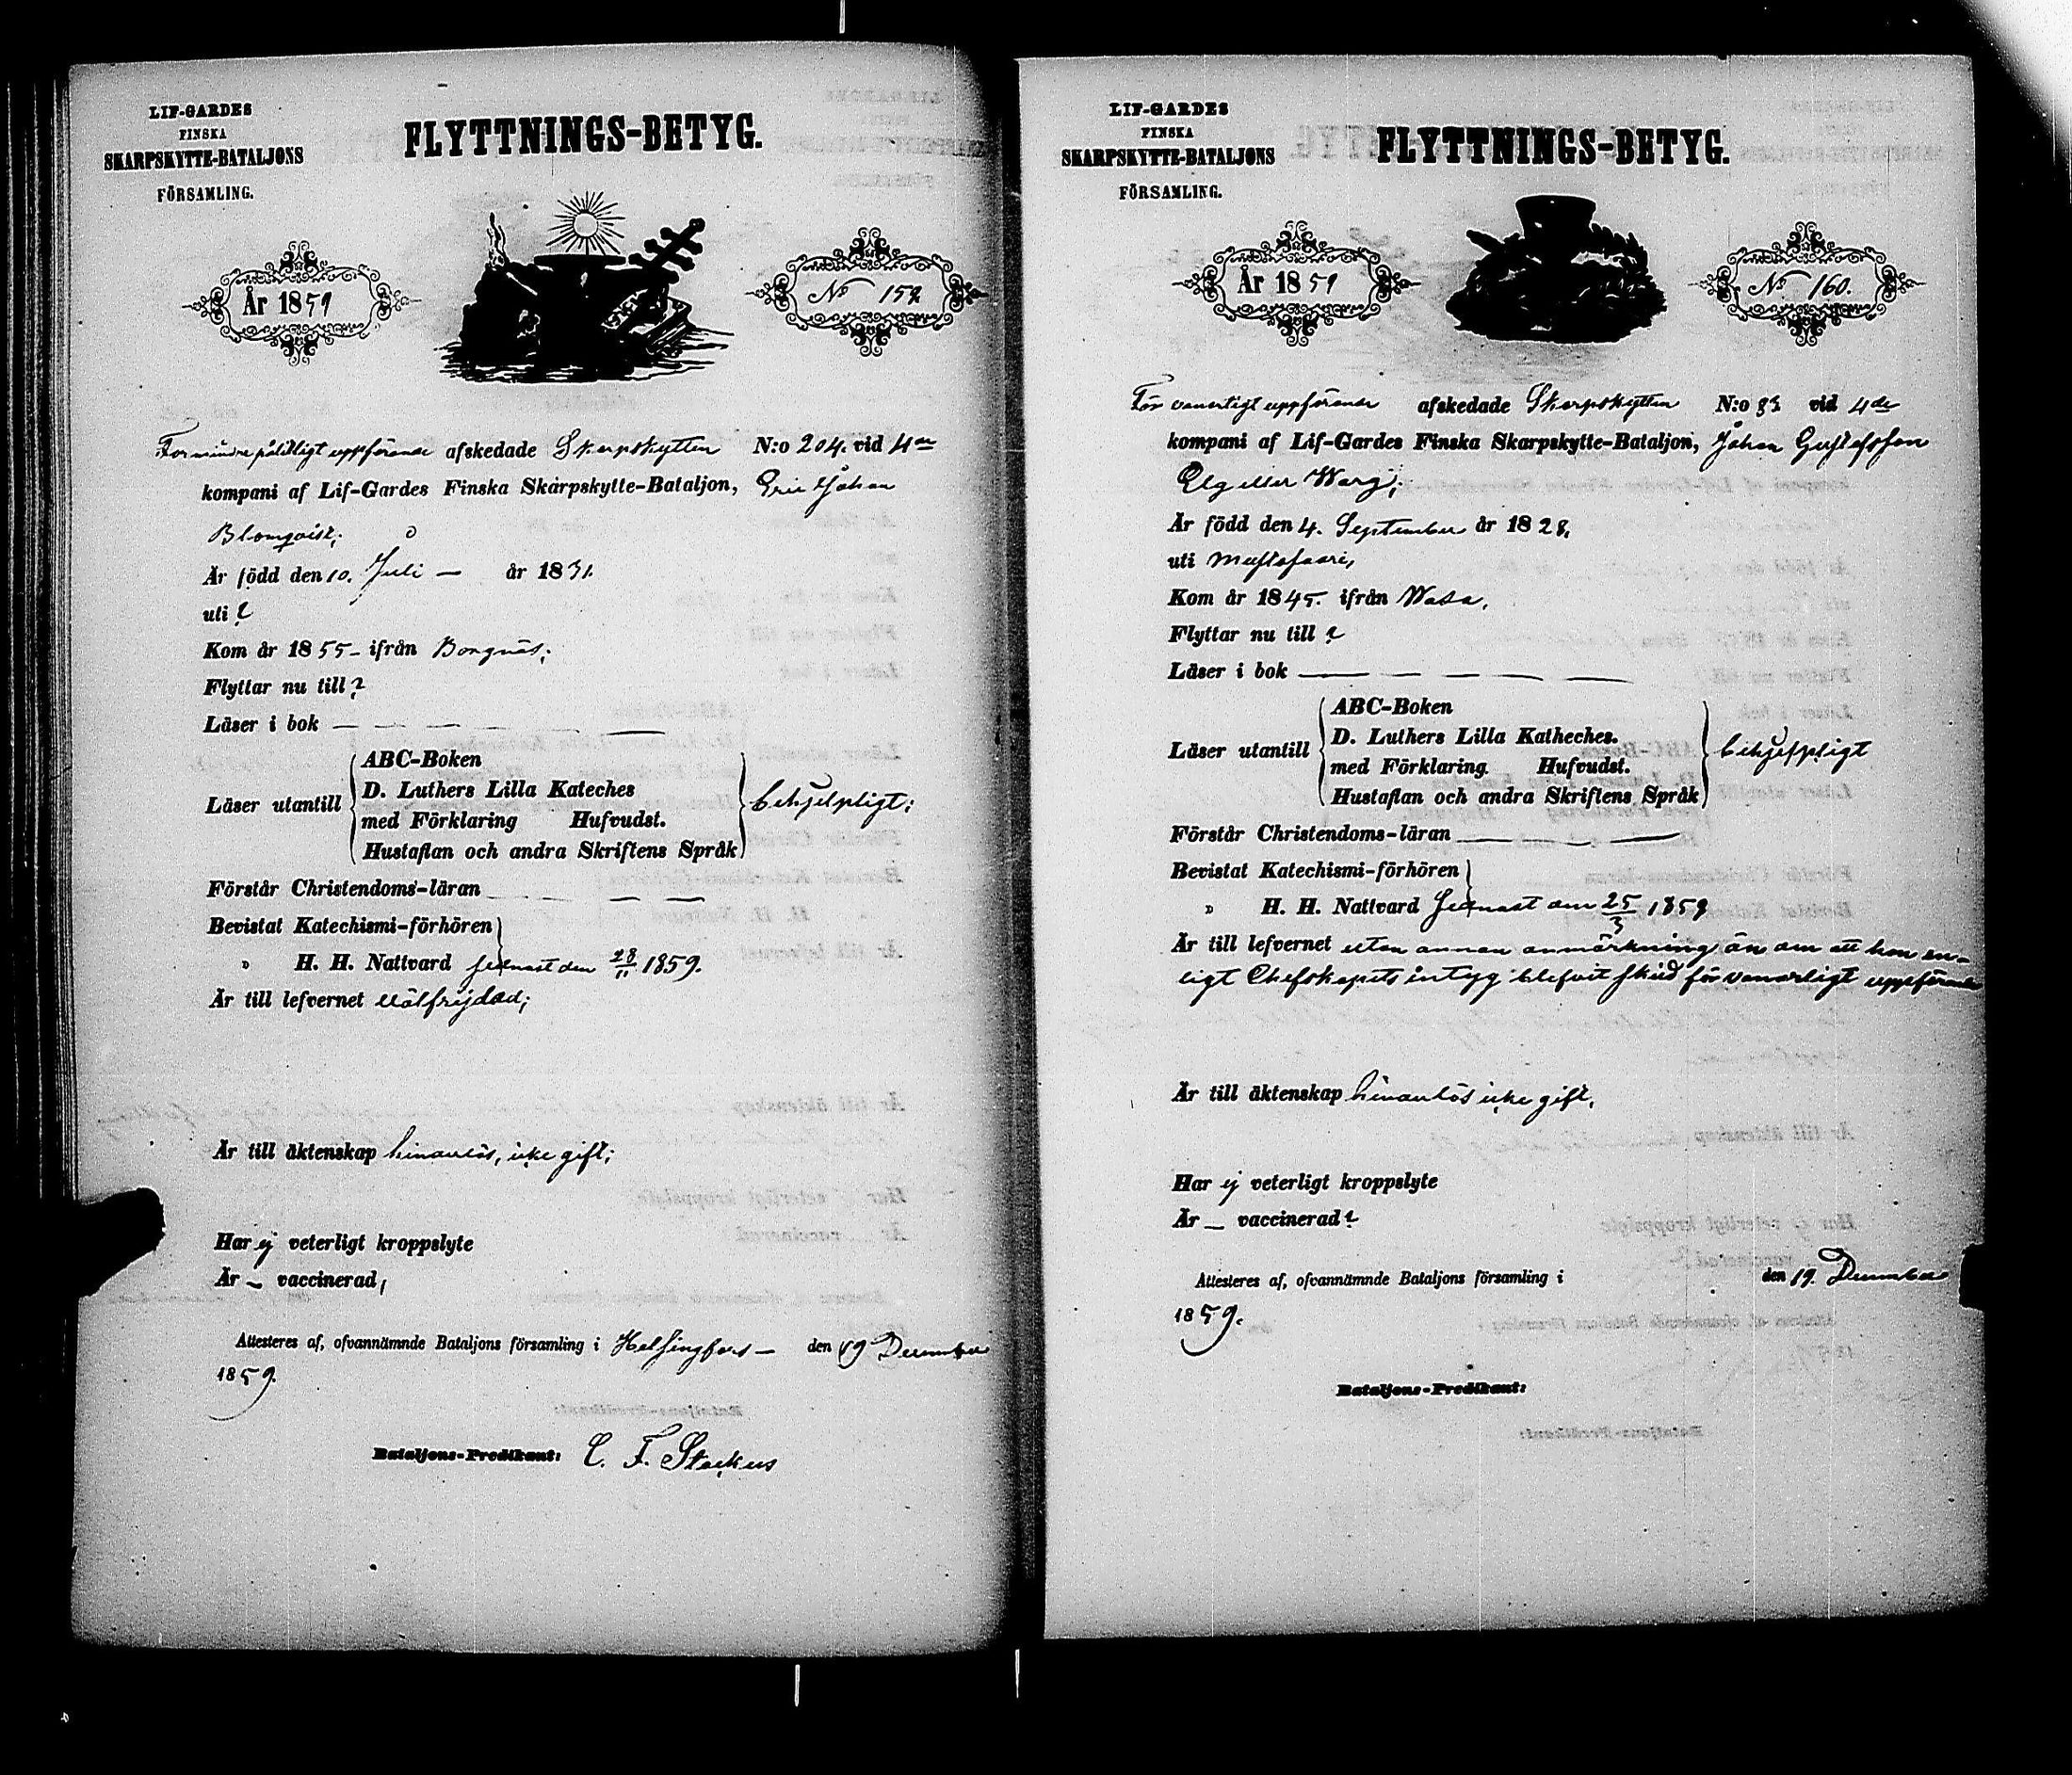 LIF-GARDES
FINSKA
SKARPSKYTTE-BATALJONS
FÖRSAMLING.
FLYTTNINGS-BETYG.
År 1859
No 159.
För mindre pålitligt uppförande afskedade Skarpskytten N:o 204. vid 4de
kompani af Lif-Gardes Finska Skarpskytte-Bataljon, Eric Johan
Blomqvist;
Är född den 10. Juli — år 1831.
uti ?
Kom år 1855 - ifrån Borgnäs;
Flyttar nu till ?
Läser i bok — — — — —
Läser utantill
ABC-Boken
D. Luthers Lilla Kateches
med Förklaring Hufvudst.
Hustaflan och andra Skriftens Språk
behjelpligt;
Förstår Christendoms-läran — — — —
Bevistat Katechismi-förhören
» H. H. Nattvard sednast den 28/11 1859.
Är till lefvernet välfrejdad;
Är till äktenskap hinderlös, icke gift;
Har ej veterligt kroppslyte
Är — vaccinerad,
Attesteres af, ofvannämnde Bataljons församling i Helsingfors — den 19 December
1859.
Bataljons-Predikant: C. F. Stackus
LIF-GARDES
FINSKA
SKARPSKYTTE-BATALJONS
FÖRSAMLING.
FLYTTNINGS-BETYG.
År 1859
No 160.
För vanartigt uppförande afskedade Skarpskytten N:o 83 vid 4de
kompani af Lif-Gardes Finska Skarpskytte-Bataljon, Johan Gustafsson
Elg eller Warg;
Är född den 4. September år 1828.
uti Mustasaari,
Kom år 1845. ifrån Wasa,
Flyttar nu till ?
Läser i bok — — — — —
Läser utantill
ABC-Boken
D. Luthers Lilla Katheches.
med Förklaring Hufvudst.
Hustaflan och andra Skriftens Språk
behjelpligt
Förstår Christendoms-läran — — — —
Bevistat Katechismi-förhören
» H. H. Nattvard sednast den 25/3 1859
Är till lefvernet utan annan anmärkning än den att han en-
ligt Chefskapets intyg blefvit skild för vanartigt uppförande
Är till äktenskap hinderlös icke gift,
Har ej veterligt kroppslyte
Är — vaccinerad ?
Attesteres af, ofvannämnde Bataljons församling i den 19. December
1859.
Bataljons-Predikant: